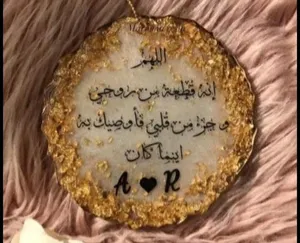 اللهم
إنه قطعة من روحي
و جزء من قلبي فأوصيك به
اينما كان
A ♥ R